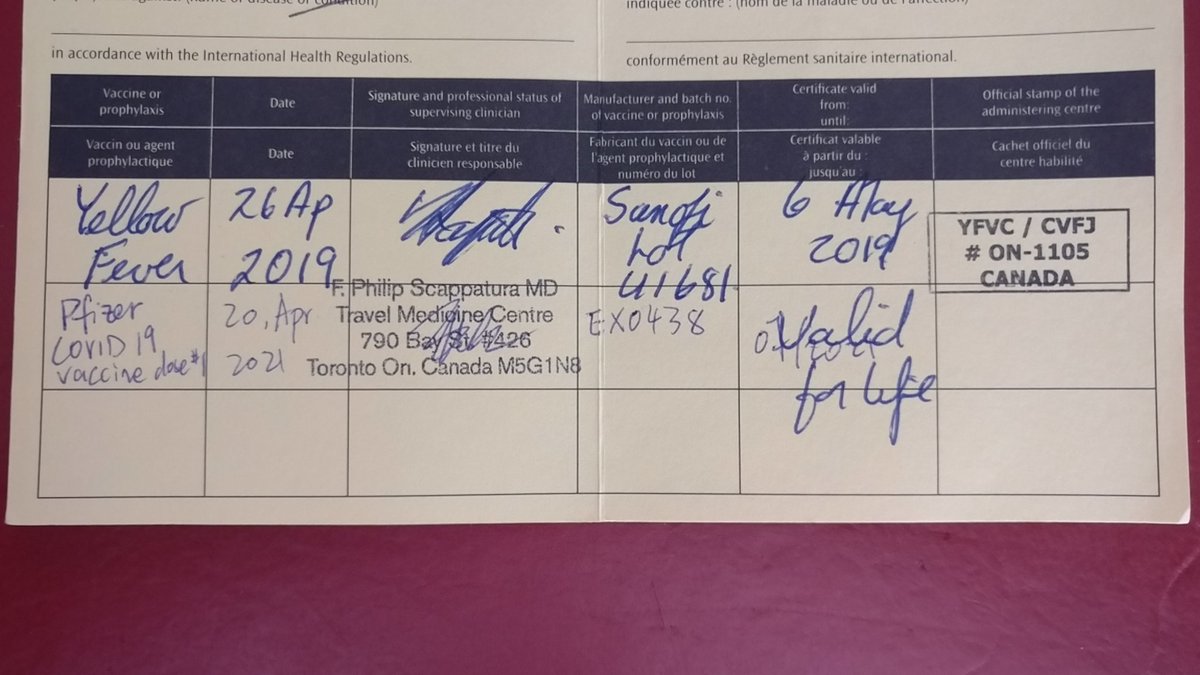 indiquée contre : (nom de la maladie ou de l'affection)
in accordance with the International Health Regulations.
conformément au Règlement sanitaire international.
Vaccine or
prophylaxis
Date
Signature and professional status of
supervising clinician
Manufacturer and batch no.
of vaccine or prophylaxis
Certificate valid
from:
until:
Official stamp of the
administering centre
Vaccin ou agent
prophylactique
Date
Signature et titre du
clinicien responsable
Fabricant du vaccin ou de
l'agent prophylactique et
numéro du lot
Certificat valable
à partir du :
jusqu'au :
Cachet officiel du
centre habilité
Yellow
Fever
26 Ap
2019
Sanofi
Lot
U1681
6 May
2019
Valid
for life
YFVC / CVFJ
# ON-1105
CANADA
F. Philip Scappatura MD
Travel Medicine Centre
790 Bay St. #426
Toronto On. Canada M5G1N8
Pfizer
COVID 19
vaccine dose #1
20, Apr
2021
EX0438